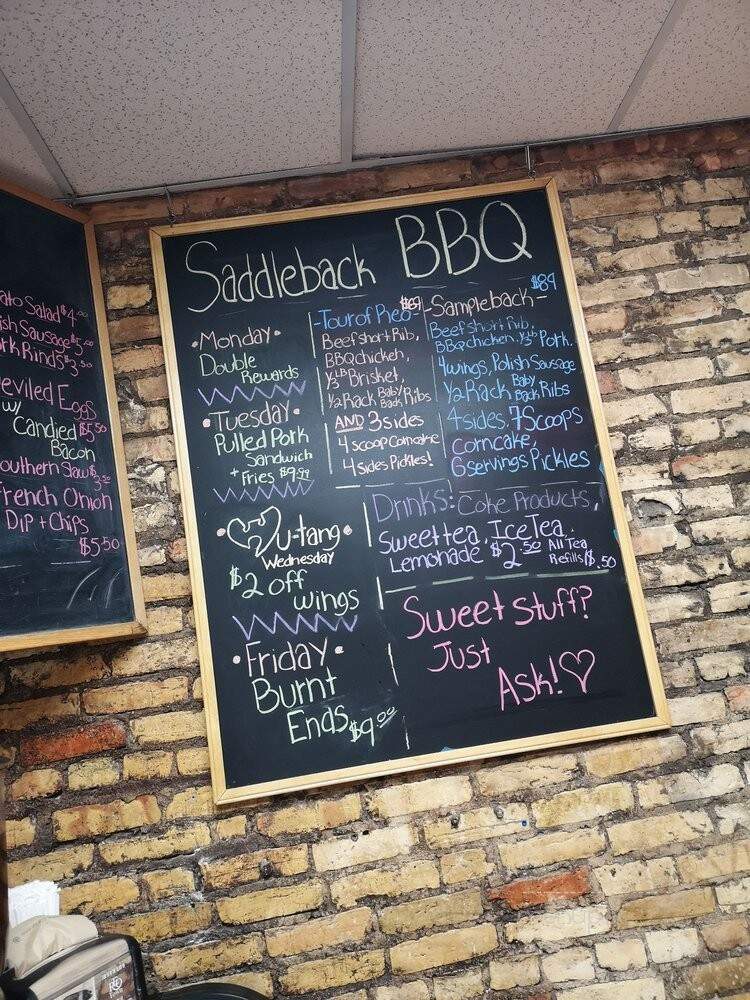 ato Salad $4.00
ish Sausage $5.00
rk Rinds $3.50
eviled Eggs
w/ Candied $5.50
Bacon
outhern Slaw $3.50
French Onion
Dip + Chips
$5.50
Saddleback BBQ
•Monday•
Double
Rewards
•Tuesday•
Pulled Pork
Sandwich
+ Fries $9.99
•Wu-tang•
Wednesday
$2 off
wings
•Friday•
Burnt
Ends $9.00
$69
-Tour of Reo-
Beef short Rib,
BBQ chicken,
1/3 LB Brisket,
1/2 Rack Baby Back Ribs
AND 3 sides
4 scoop Corncake
4 sides Pickles!
$89
-Sampleback-
Beef short Rib,
BBQ chicken, 1/3 LB Pork,
4 wings, Polish Sausage
1/2 Rack Baby Back Ribs
4 sides, 7 Scoops
corncake,
6 servings Pickles
Drinks: Coke Products,
Sweet tea, Ice Tea,
Lemonade $2.50 All Tea Refills $.50
Sweet Stuff?
Just
Ask!